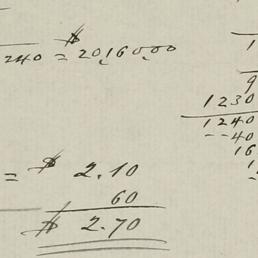 $
240 = 2016000
1
9
1230
1240
--40
16
= $ 2.10
60
$ 2.70